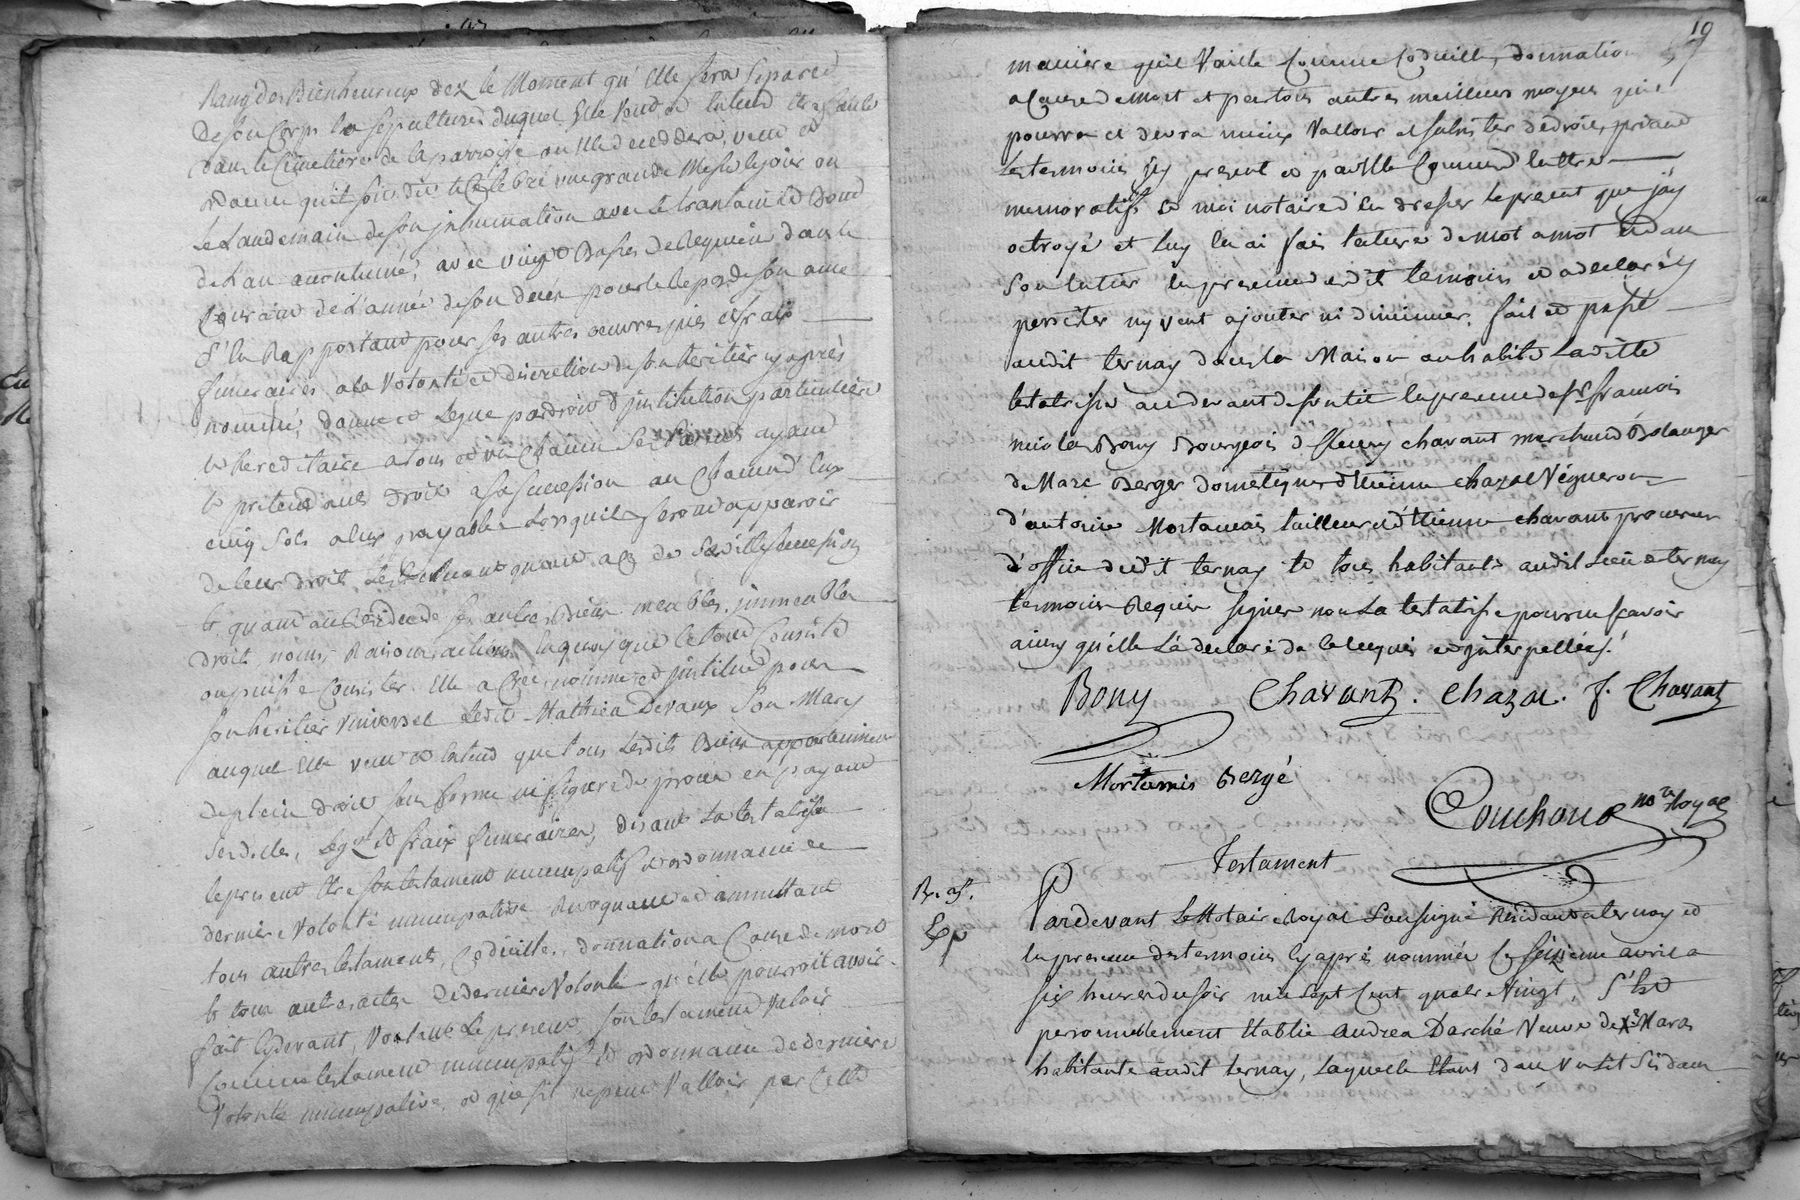 Rang des Bienheureux dez le Moment qu'Elle sera séparée
De son Corps la sépulture duquel Elle veud et entend être faite
dans le Cimetière de la parroisse ou Elle deceddera, veud et
ordonne qu'il soit dit et Celebré une grande Messe le jour ou
Le Landemain de son jnhumation avec Le trantain Le Bout
de L'an accoutumé, avec vingt Basses de Requiem dans le
Courant de L'année de son deces pour le Repos de son ame
S'en Rapportant pour ses autres oeuvres pies et frais
funeraires a la Volonté et discretion de son heritier cy après
nommé, donne et Legue par droit d'jnstitution particulière
et hereditaire a tous et un Chacun Ses Parents ayant
et pretendants droit a sa succession au Chacun d'Eux
cinq Sols a leur payables Lorsquils feront apparoir
de leur droit Les Excluant quand a ce de Saditte succession
Et quand au Residu de ses autres Biens meubles, jmmeubles
droits, noms, Raisons, actions En quoy que le tout Consiste
ou puisse Consister Elle a Créé, nommé et jnstitué pour
son héritier universel Ledit Mathieu Devaux Son Mary
auquel Elle veut et Entend que tous Lesdits Biens appartiennent
de plein droit sans forme ni figure de proces en payant
Ses dettes, Legs et fraix funeraires, disant La testatrise
le present être son testament nuncupatif et ordonnance de
derniere Volonté nuncupative Revoquant et annullant
tous autres testaments, Codicilles, donnation a Cause de mort
Et tous autres actes De derniere Volonté qu'elle pourroit avoir
fait Cy devant, Voulant Le present son testament Valoir
Comme testament nuncupatif et ordonnance de derniere
Volonté nuncupative, et que s'il ne peut Valloir par Cette
19
maniere quil Vaille Comme Codicille, donnation
a Cause de Mort et par tous autres meilleurs moyens quil
pourra et devra mieux Valloir et subsister de droit, priant
Les temoins jcy present et par Elle Connus d'Ettre
memoratifs et moi notaire d'en dresser le present que j'ay
octroyé et luy En ai fait lecture de mot a mot Et dans
Son Entier En presence desdits temoins et a declaré y
persister ny veut ajouter ni diminuer. fait et passé
audit ternay dans la Maison ou habite Laditte
testatrise au devant de son lit En presence de Sr francois
nicolas Bony Bourgeois de fleury chavant marchand Bolanger
de Marc Berger dometique d'Etienne Chazal Vigneron
d'antoine Mortamais tailleur et d'Etienne chavant procureur
d'office dudit ternay Et tous habitants audit Lieu de ternay
temoins Requis signer non La testatrise pour ne scavoir
ainsy qu'elle L'a declaré de ce Requis et jnterpellées.
Bony Chavant. Chazal. f. Chavant
Mortamais Bergé
Couchoud nore royal
Testament
Par devant Le Notaire Royal Soussigné Residant a ternay et
En presence des temoins cy après nommés Ce seizieme avril a
six heures du soir mil sept Cent quatre Vingt, S'est
personnellement Etablie andrea Darché Veuve de Maras
habitante audit ternay, Laquelle Etant dans un Lit Sis dans